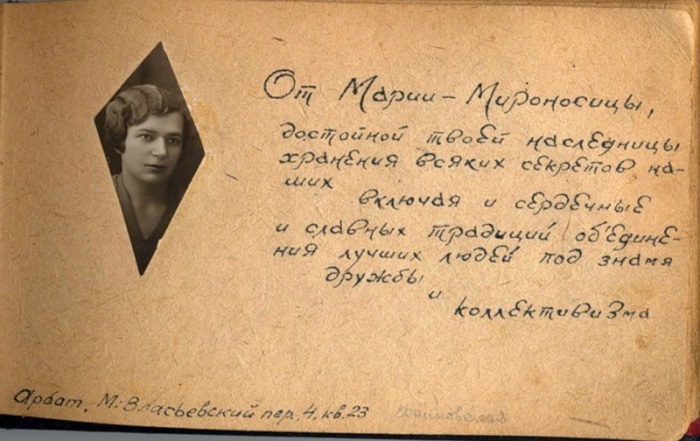 От Марии-Мироносицы,
достойной твоей наследницы
хранения всяких секретов на-
ших
включая и сердечные
и славных традиций об'едине-
ния лучших людей под знамя
дружбы
и
коллективизма
Арбат, М. Власьевский пер. 4. кв. 23